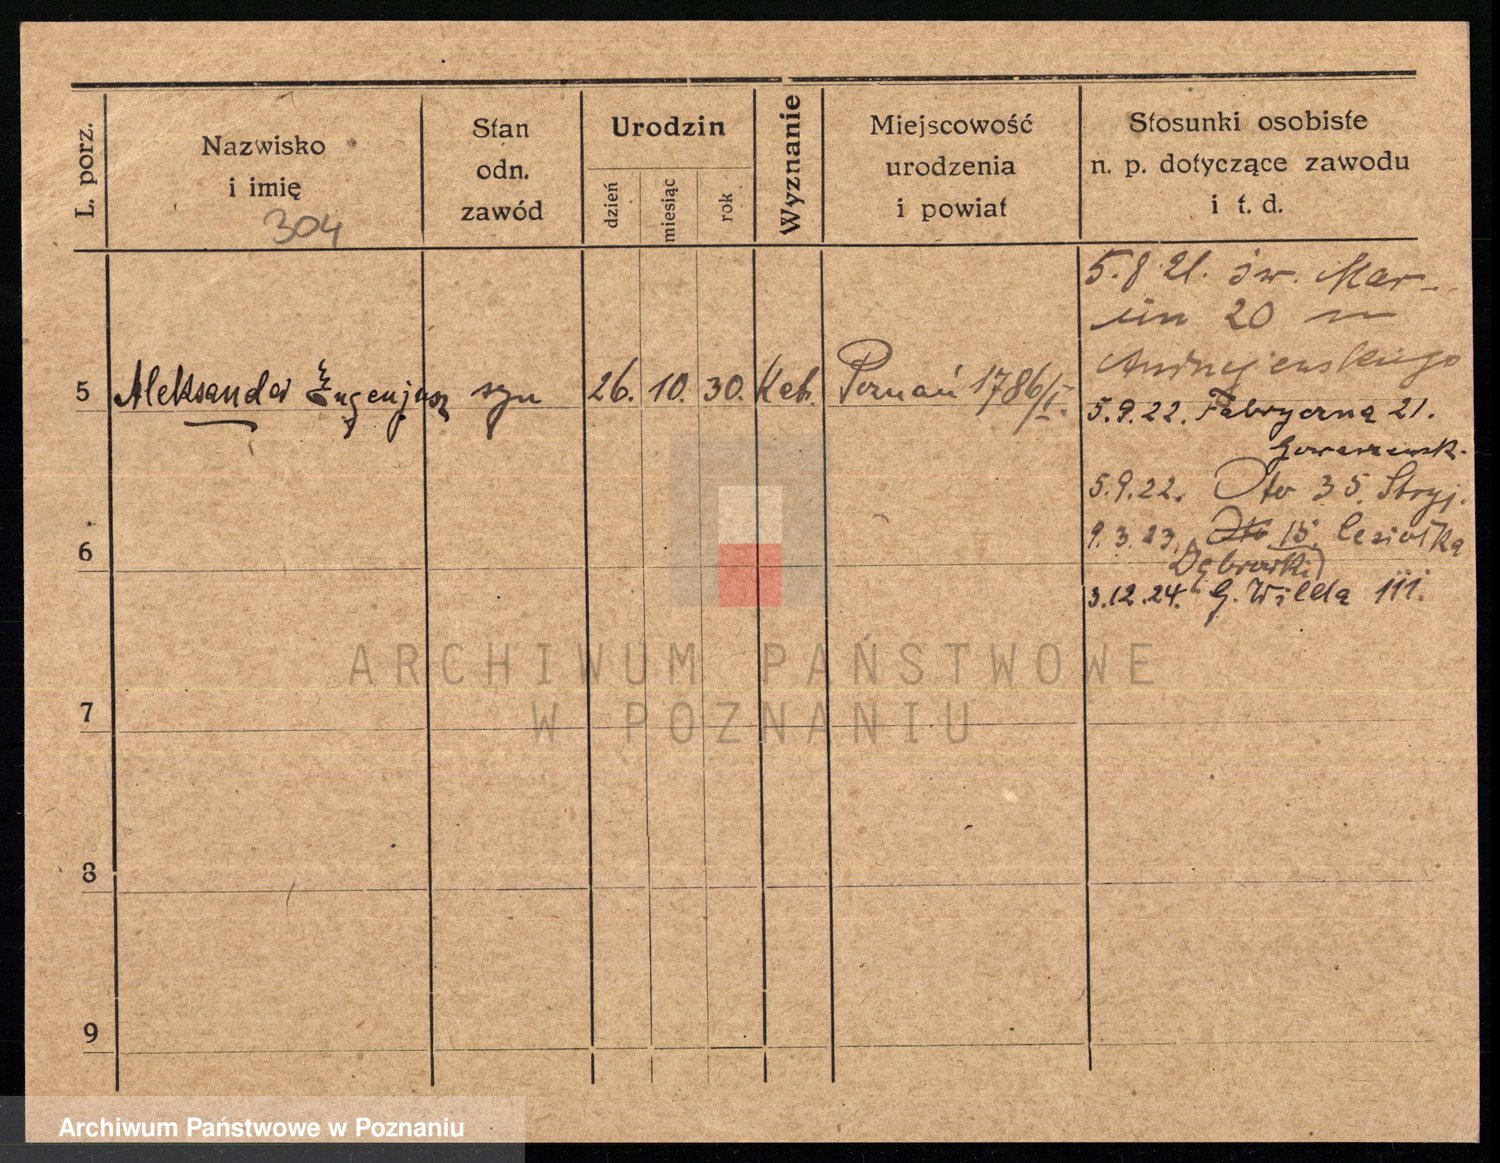 L. porz.
Nazwisko
i imię
304
Stan
odn.
zawód
Urodzin
dzień
miesiąc
rok
Wyznanie
Miejscowość
urodzenia
i powiat
Stosunki osobiste
n. p. dotyczące zawodu
i t. d.
5.8.21. św. Mar-
cin 20
Andrzejewskiego
5 Aleksander Eugenjusz syn 26. 10. 30. Kat. Poznań 1786/I.
5.9.22. Fabryczna 21.
5.9.22. 35. Stryj.
9.3.23. 15.
Dąbrowski
3.12.24. G. Wilda 111.
6
7
8
9
ARCHIWUM PAŃSTWOWE
W POZNANIU
Archiwum Państwowe w Poznaniu